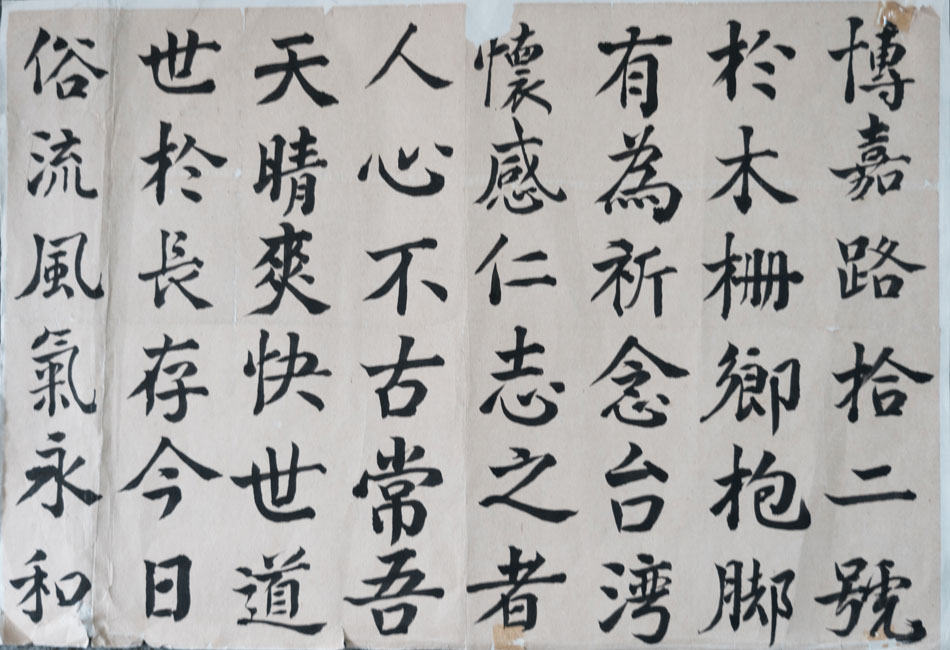 博嘉路拾二號
於木柵鄉抱脚
有為祈念台湾
懷感仁志之者
人心不古常吾
天晴爽快世道
世於長存今日
俗流風氣永和